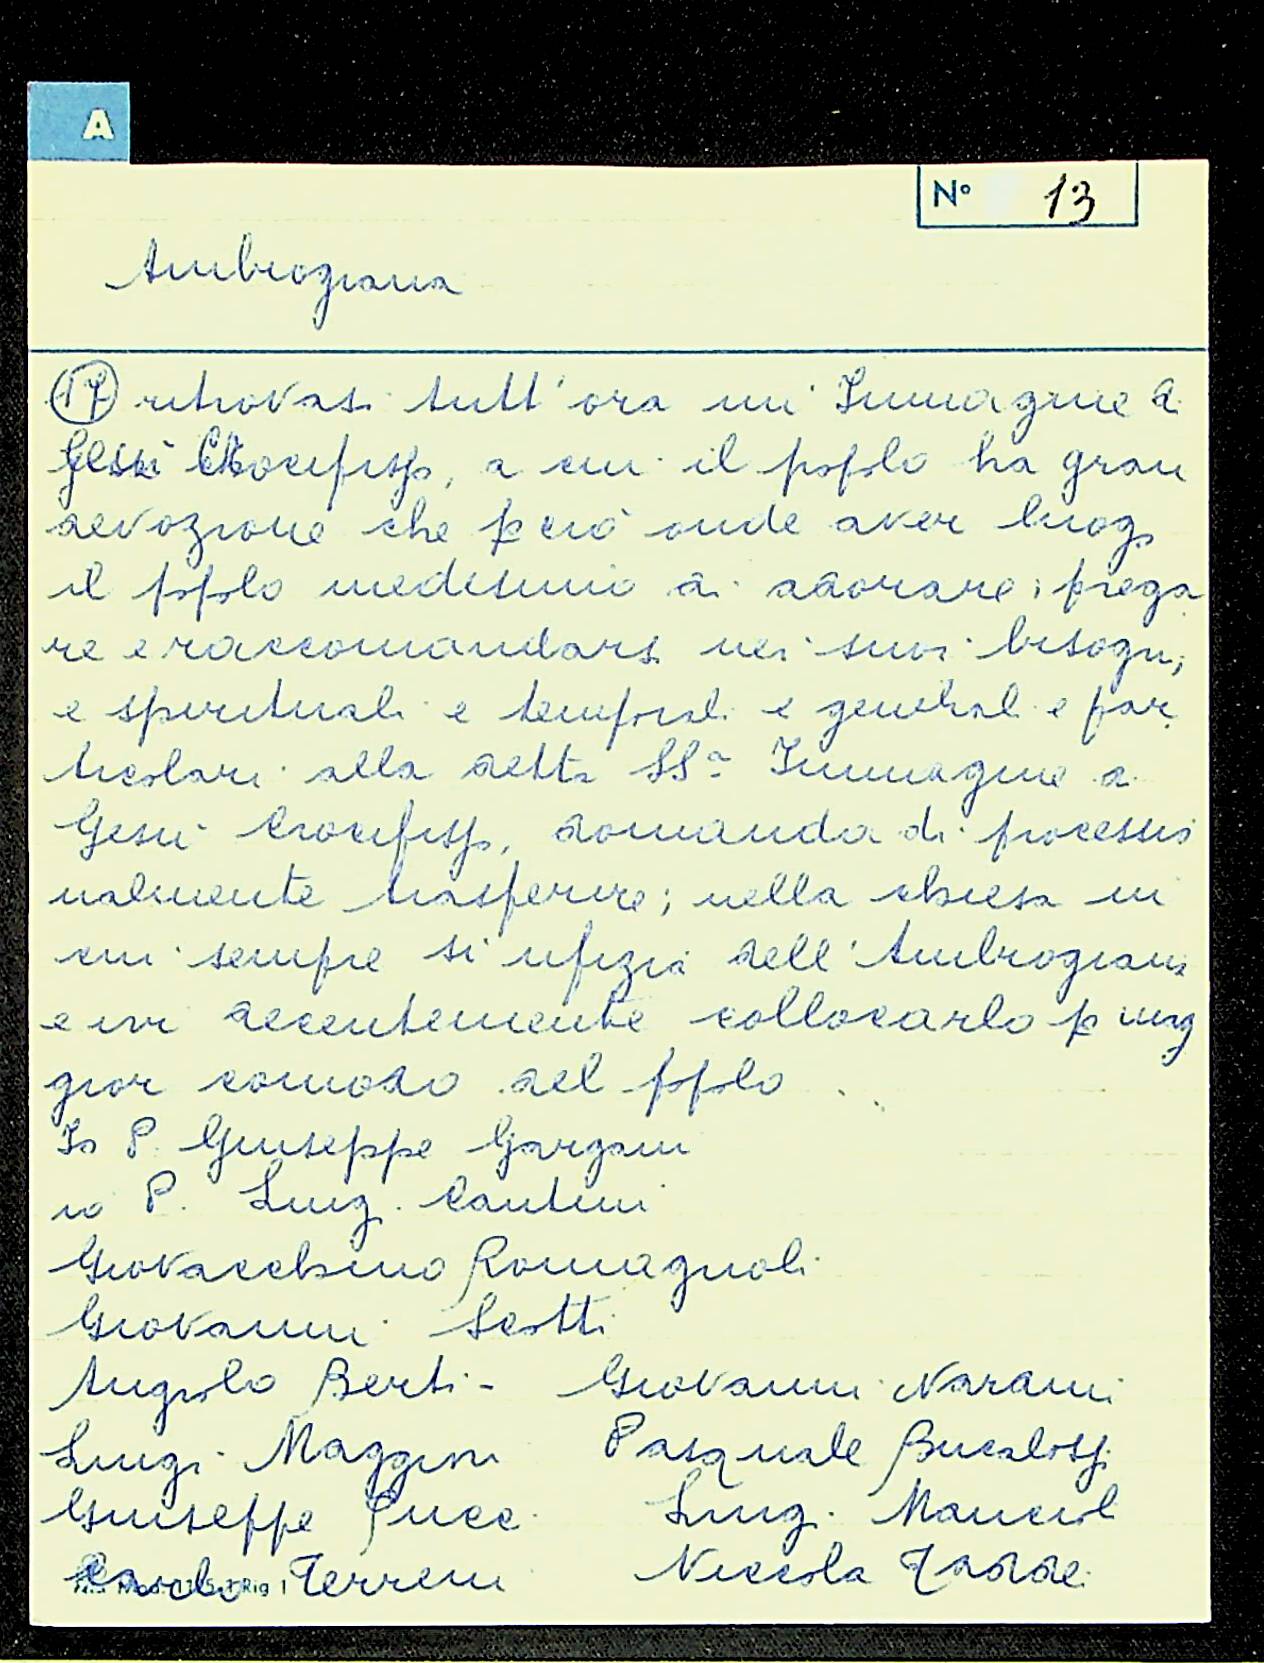 A
N° 13
Ambrogiana
(17) ritrovasi tutt'ora un Immagine di
Gesù Crocifisso, a cui il popolo ha gran
devozione che però onde aver luogo
il popolo medesimo di adorare, prega
re e raccomandarsi nei suoi bisogni,
e spirituali e temporali e generali e par
ticolari alla detta SSa Immagine di
Gesù Crocifisso, domanda di processio
nalmente trasferire; nella chiesa in
cui sempre si ufizia dell'Ambrogiana
e ivi decentemente collocarlo p mag
gior comodo del popolo
Io P. Giuseppe Gargani
io P. Luigi Cantini
Giovacchino Romagnoli
Giovanni Scotti
Angiolo Berti - Giovanni Narani
Luigi Maggini Pasquale Bucalossi
Giuseppe Pucci Luigi Mancioli
Carlo Terreni Niccola Taddei